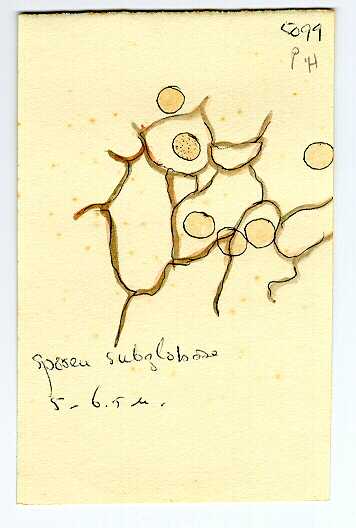 5099
PH
sporen subglobose
5 - 6.5 µ.